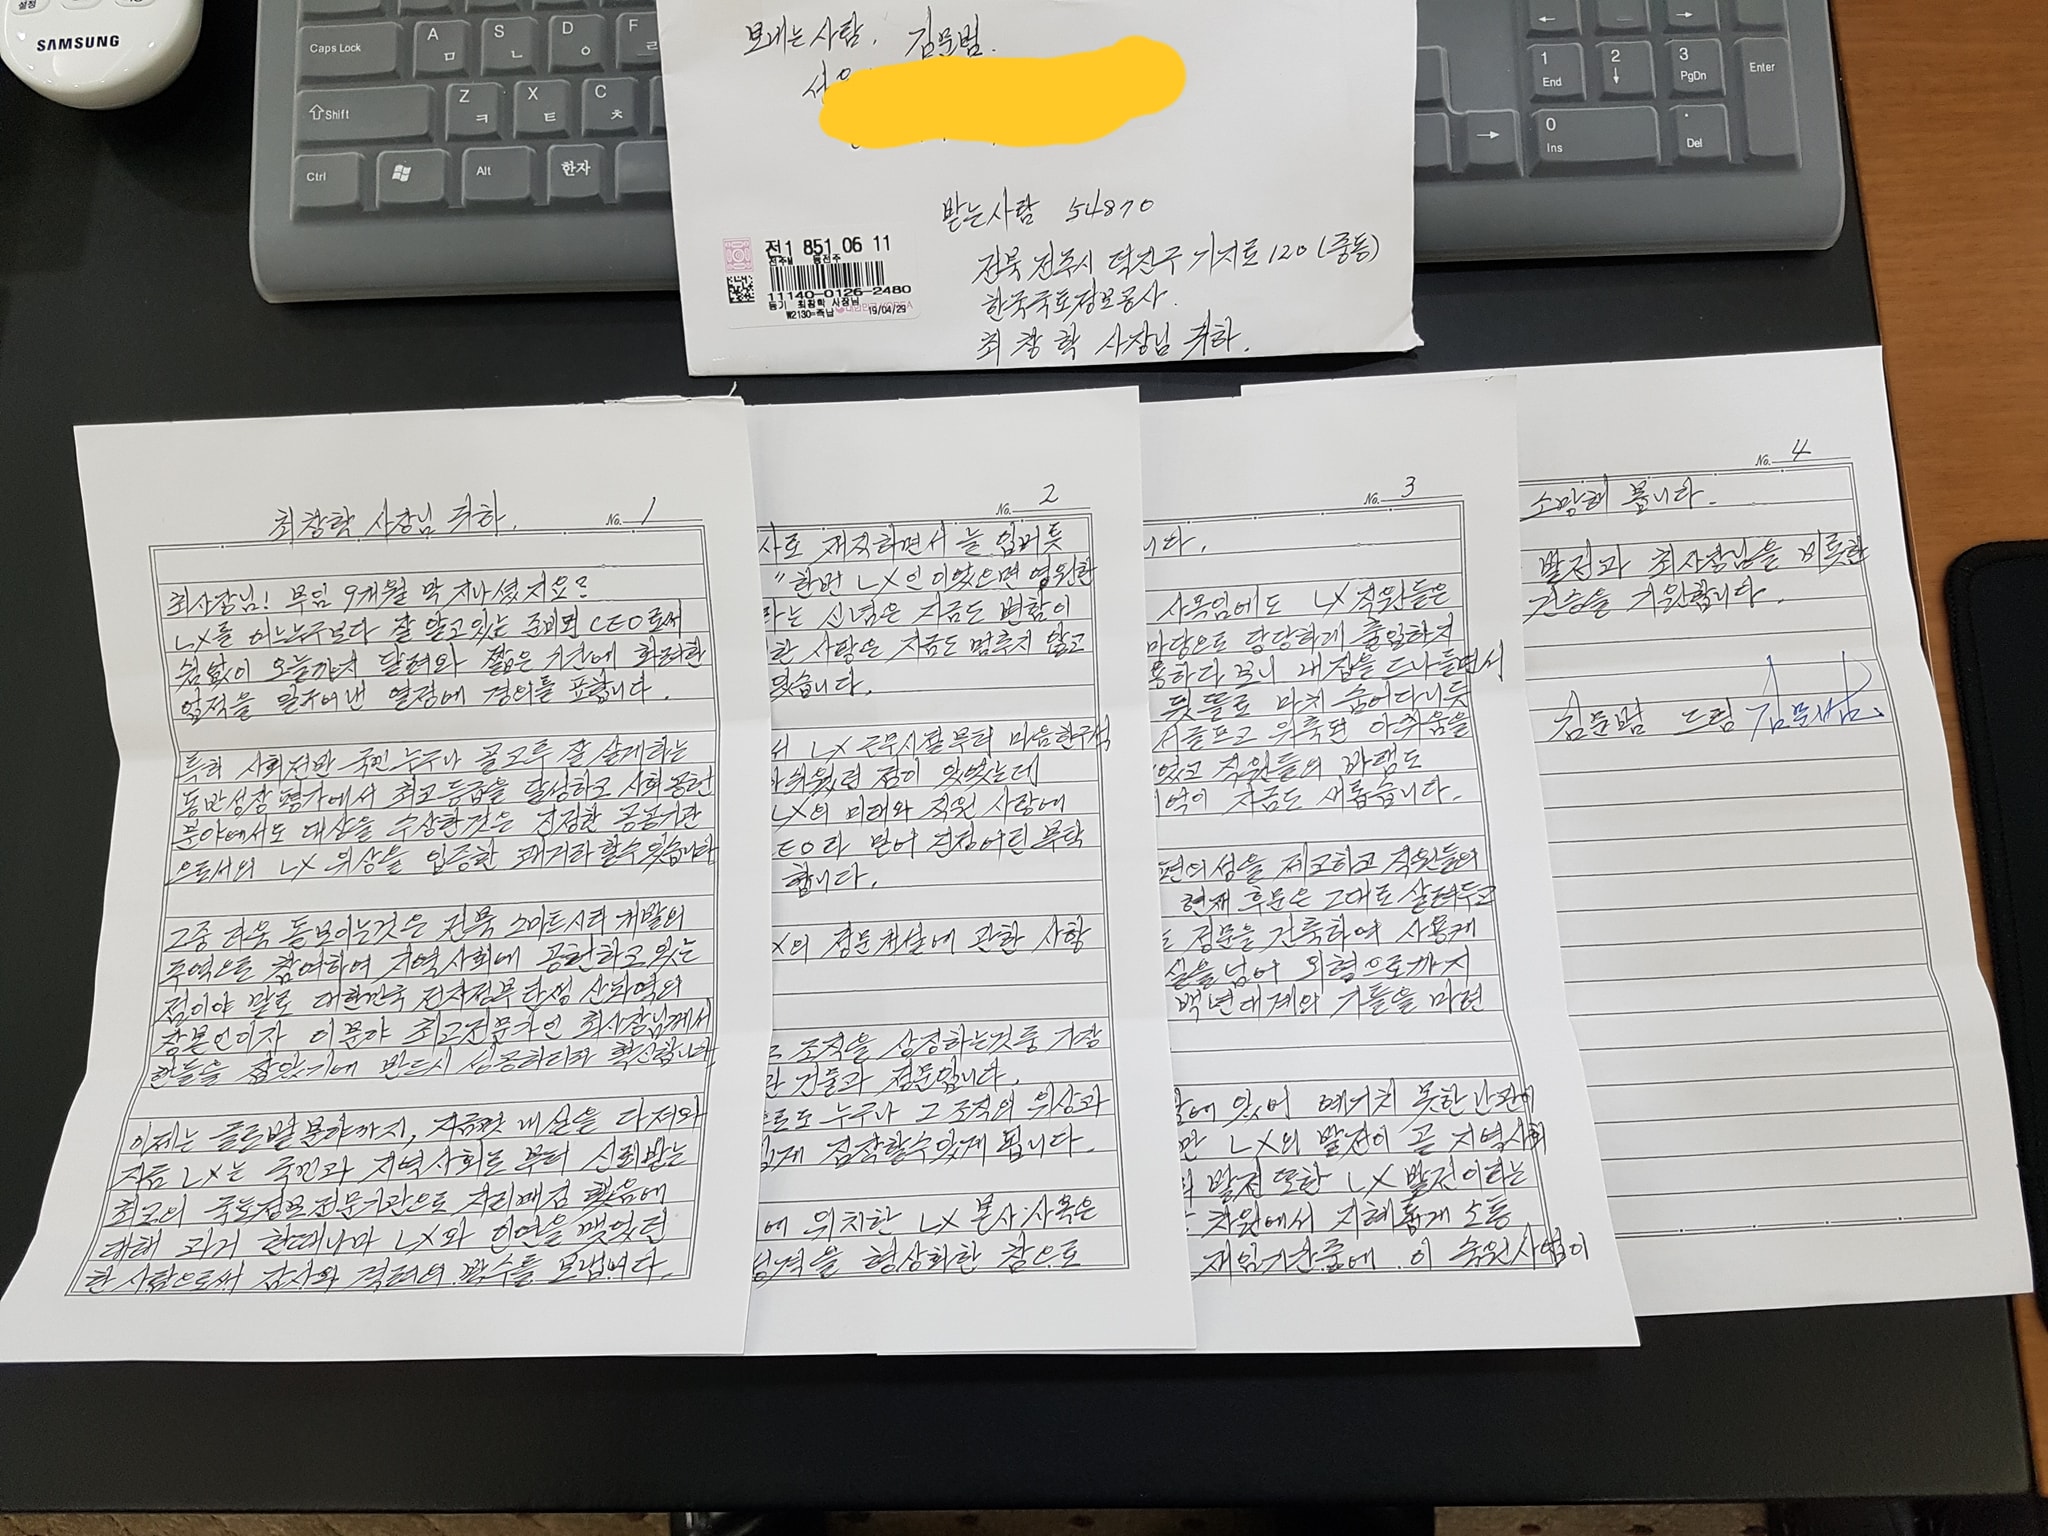 SAMSUNG
설정
Caps Lock
A ㅁ
S ㄴ
D ㅇ
F ㄹ
Shift
Z ㅋ
X ㅌ
C ㅊ
Ctrl
Alt
한자
1 End
2
3 PgDn
Enter
0 Ins
. Del
보내는사람. 김문범.
받는사람 54870
전북 전주시 덕진구 기지로 120 (중동)
한국국토정보공사.
최창학 사장님 귀하.
전1 851 06 11
전주M 동전주
11140-0126-2480
등기 최창학 사장님
W2130=즉납 19/04/29
최창학 사장님 귀하.
No. 1
최사장님! 부임 9개월 막 지나셨지요?
LX를 어느누구보다 잘 알고있는 준비된 CEO로써
쉼없이 오늘까지 달려와 짧은 기간에 화려한
업적을 일구어낸 열정에 경의를 표합니다.
특히 사회전반 국민누구나 골고루 잘 살게하는
동반성장 평가에서 최고등급을 달성하고 사회공헌
분야에서도 대상을 수상한것은 진정한 공공기관
으로서의 LX 위상을 입증한 쾌거라 할수있습니다
그중 더욱 돋보이는것은 전북 스마트시티 개발의
주역으로 참여하여 지역사회에 공헌하고 있는
점이야 말로 대한민국 전자정부탄생 산파역의
장본인이자 이 분야 최고전문가인 최사장님께서
핸들을 잡았기에 반드시 성공하리라 확신합니다
이제는 글로벌 분야까지, 지금껏 내실을 다져와
지금 LX는 국민과 지역사회로 부터 신뢰받는
최고의 국토정보전문기관으로 자리매김 했음에
대해 과거 한때나마 LX와 인연을 맺었던
한 사람으로써 감사와 격려의 박수를 보냅니다.
No. 2
사로 재직하면서 늘 입버릇
"한번 LX인이었으면 영원한
라는 신념은 지금도 변함이
한 사랑은 지금도 멈추지 않고
있습니다.
서 LX 근무시절부터 마음한구석
아쉬웠던 점이 있었는데
LX의 미래와 직원 사랑에
EO라 믿어 진정어린 부탁
합니다.
X의 정문개설에 관한 사항
조직을 상징하는것중 가장
건물과 정문입니다.
으로도 누구나 그 조직의 위상과
쉽게 짐작할수있게 됩니다.
에 위치한 LX 본사사옥은
성격을 형상화한 참으로
No. 3
니다.
사옥임에도 LX직원들은
마당으로 당당하게 출입하지
용하다 보니 내집을 드나들면서
뒷뜰로 마치 숨어다니듯
서글프고 위축된 아쉬움을
었고 직원들의 바램도
기억이 지금도 새롭습니다.
편의성을 제고하고 직원들의
현재 후문은 그대로 살려두고
정문을 건축하여 사용케
실을넘어 외형으로까지
백년대계의 기틀을 마련
말에 있어 예기치 못한 난관이
만 LX의 발전이 곧 지역사회
의 발전 또한 LX 발전이라는
차원에서 지혜롭게 소통
재임기간중에 이 숙원사업이
No. 4
소망해 봅니다.
발전과 최사장님을 비롯한
건승을 기원합니다.
김문범 드림